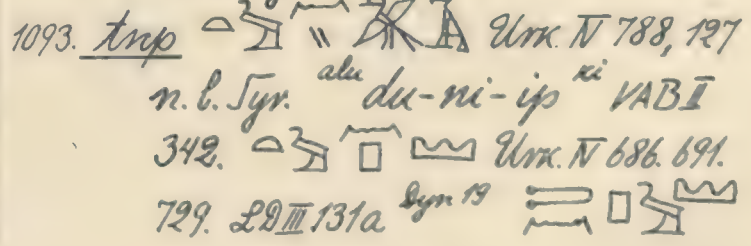 1093. tnp Urk. IV 788, 127
n. l. Syr. alu du-ni-ip ki VAB II
342. Urk. IV 686. 691.
729. LD III 131a Dyn 19